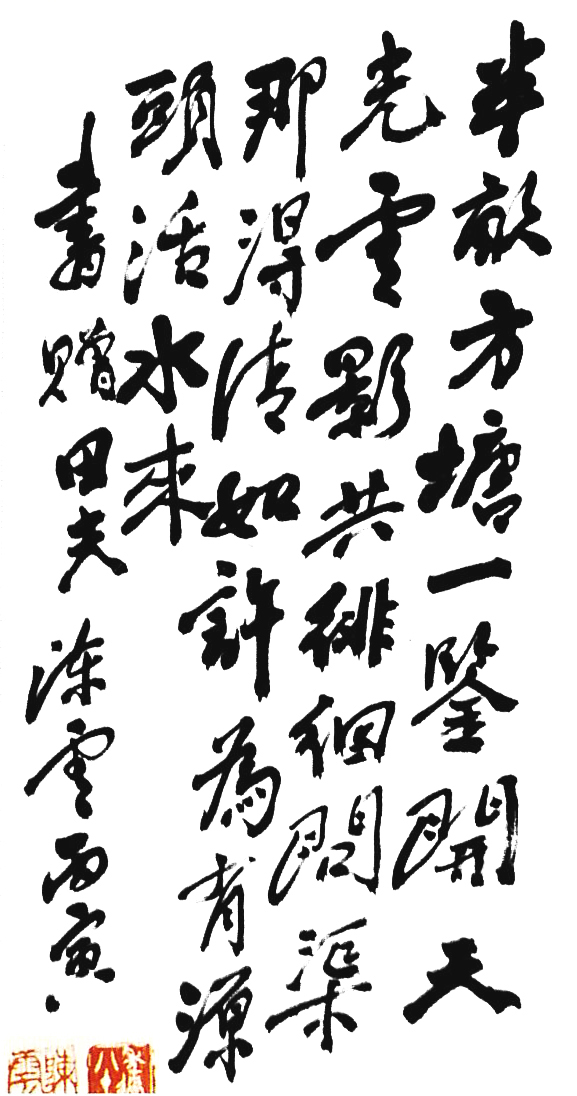 半畝方塘一鑒開天
光雲影共徘徊問渠
那得清如許為有源
頭活水來
書贈田夫 陳雲丙寅
陳雲